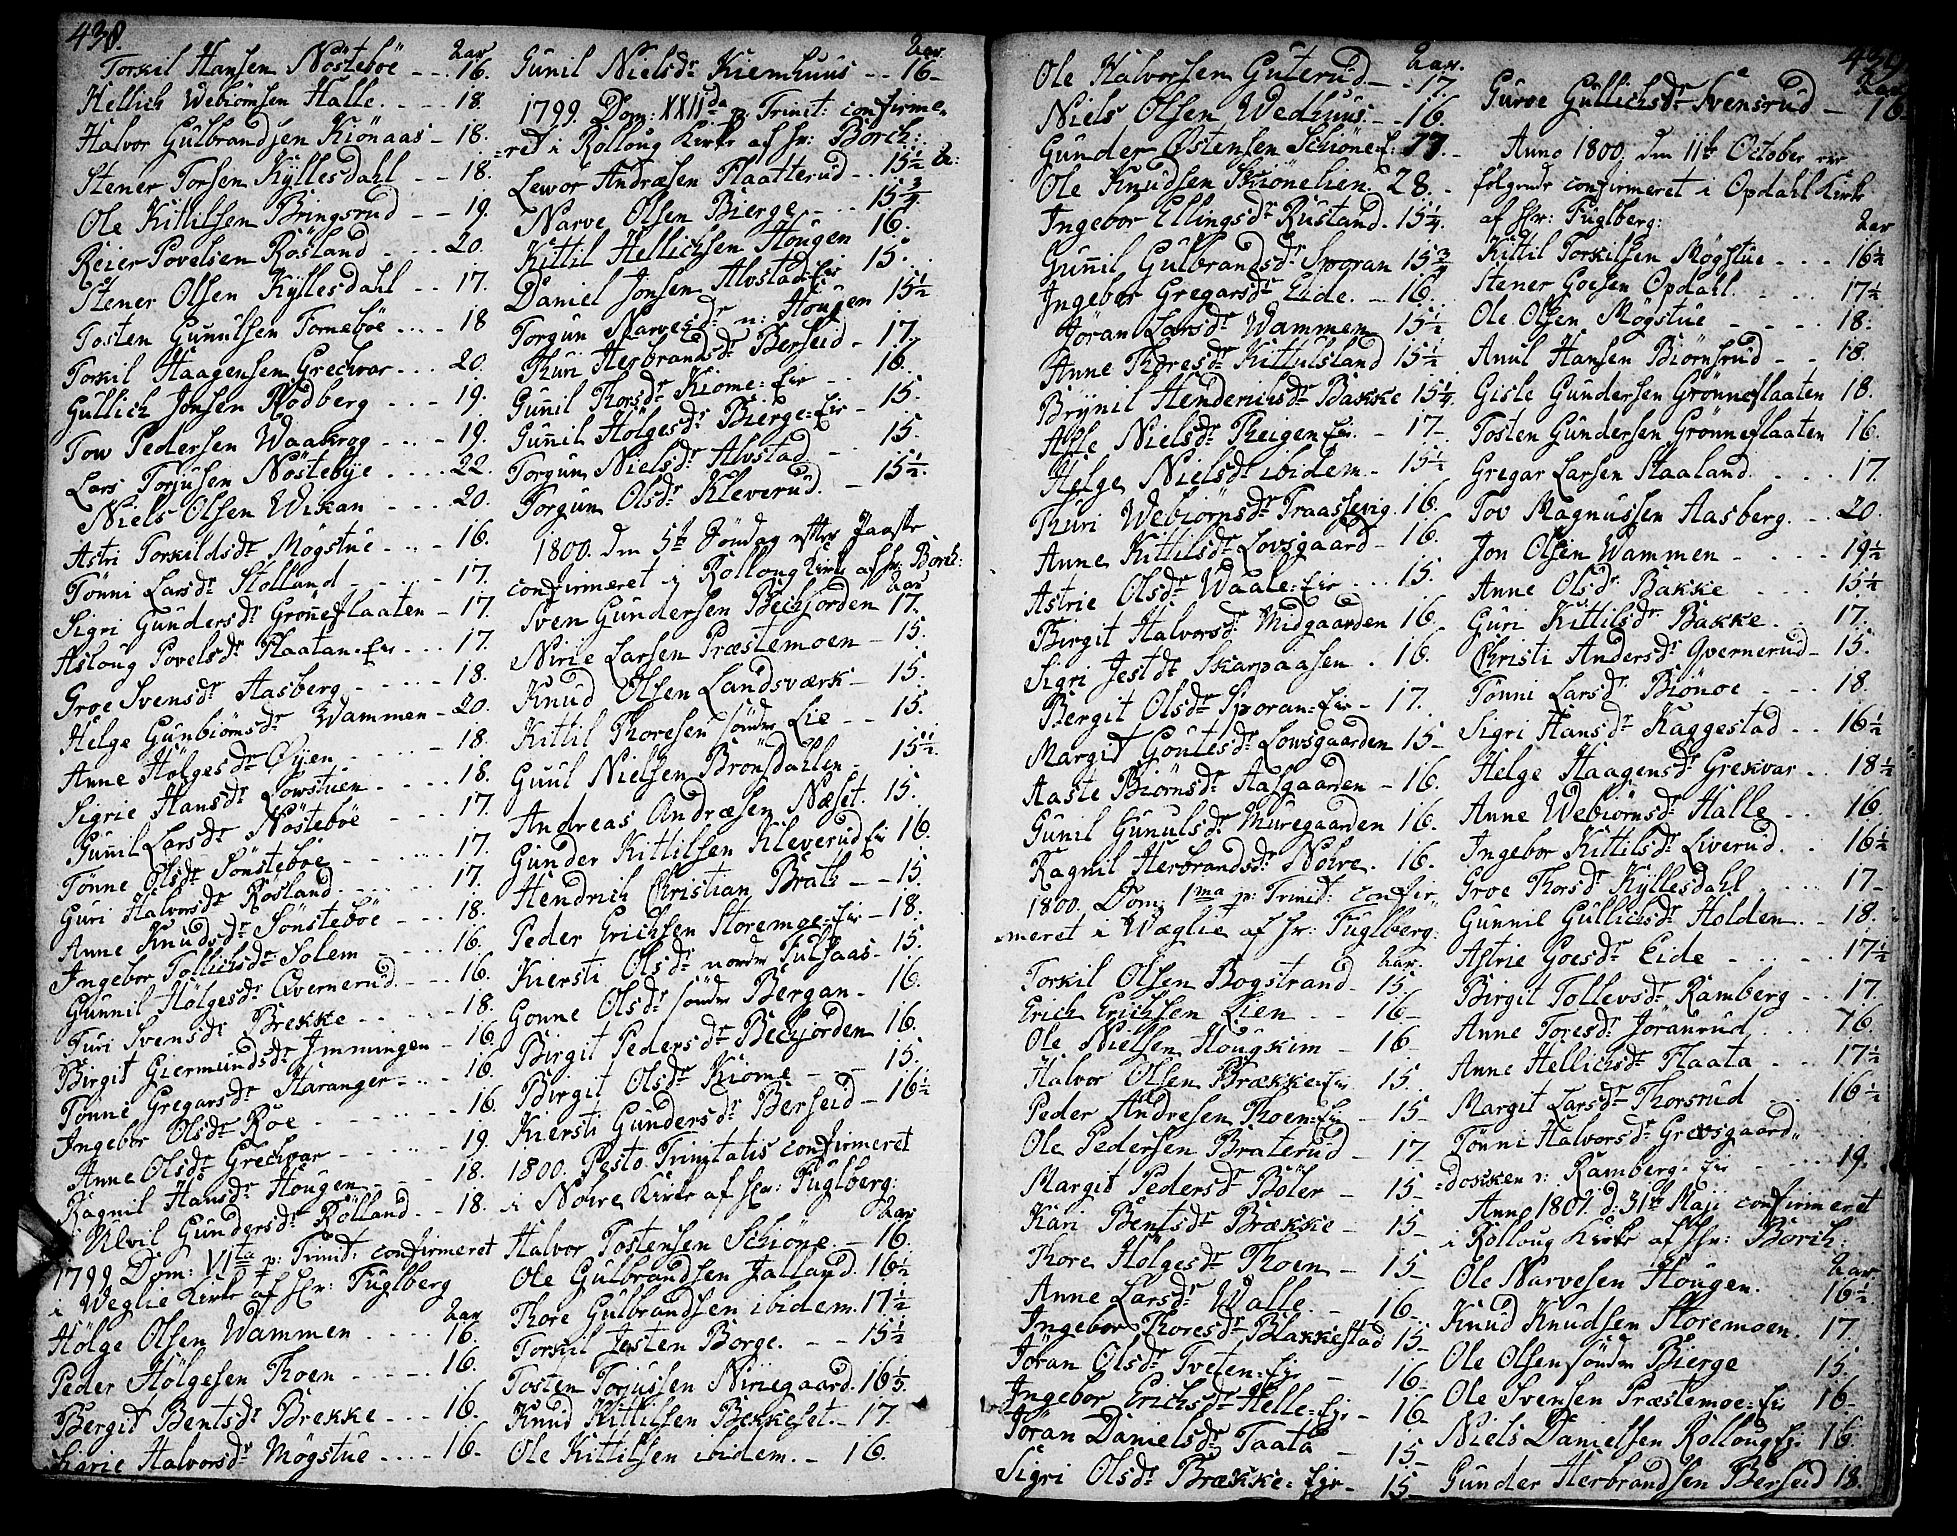 438.
Aar
Torkil Hansen Nösteböe - - 16.
Hellich Webiörnsen Halle. - - - 18.
Halvor Gulbrandsen Kiönaas - 18.
Stener Torsen Kyllesdahl - - 18.
Ole Kittilsen Bringsrud - - 19.
Reier Povelsen Rösland - - - 20.
Stener Olsen Kyllesdahl - - 17.
Tosten Gunulsen Torneböe - - - 18
Torkil Haagensen Grechvar - - - 20.
Gullich Jonsen Rödberg - - - 19.
Tow Pedersen Waakrog - - - 19.
Lars Torjusen Nöstebye - - - - 22.
Niels Olsen Wikan - - - 20.
Astri Torkildsdr Mögstue - - - 16.
Tönni Larsdr Stolland - - - - 17.
Sigri Gundersdr Gröneflaaten - 17.
Asloug Povelsdr Flaatan=Eie - - - 17.
Groe Svensdr Aasberg - - - - - 18.
Helge Gunbiörnsdr Wammen - 20.
Anne Hölgesdr Øyen - - - - 18.
Sigrie Hansdr Lowstuen - - - - 18.
Gunil Larsdr Nösteböe - - - 17.
Tönne Olsdr Sönsteböe - - - - 17.
Guri Halvorsdr Rosland. - - - - 17.
Anne Knudsdr Sönsteböe - - - 18.
Ingebor Tollichsdr Solem - - - 16.
Gunnil Hölgesdr Qvernerud. - - 16.
Turi Svensdr Brekke - - - - - 18.
Birgit Giermundsdr Immingen - 16.
Tönne Gregarsdr Haranger - - - 16.
Ingebor Olsdr Roe - - - - - 16.
Anne Olsdr Grechvar - - - - 19.
Ragnil Hansdr Hougen - - - - 18.
Ulvil Gundersdr Rölland - - 18.
1799 Dom: VIta p: Trinit: confirmeret
i Weglie Kirke af Hr: Fuglberg
Aar
Hölge Olsen Wammen - - - - 16.
Peder Hölgesen Thoen - - - - 16.
Bergit Bentsdr Brekke - - - 16.
Sigrie Halvorsdr Mögstue - - - - 16.
Aar
Gunil Nielsdr Kiemhuus - - 16
1799. Dom: XXIIda p: Trinit: confirme=
=ret i Rolloug Kirke af Hr: Borch:
Lewor Andræsen Flaatterud - - 15½ A:
Narve Olsen Bierge - - - 15¾
Kittil Hellichsen Hougen 16.
Daniel Jonsen Alvstad=Eie 15.
Torgun Narvesdr n: Hougen 15½
Thuri Herbrandsdr Berseid - 17.
Gunil Thorsdr Kiome=Eie - - 16.
Gunil Hölgesdr Bierge=Eie - 15.
Torgun Nielsdr Alvstad - - 15.
Torgun Olsdr Kleverud. - 15½.
1800. den 5te Söndag efter Paaske
confirmeret i Rolloug Kirke af Hr: Borch:
Aar
Sven Gundersen Bechjorden 17.
Nirie Larsen Præstemoen - 15.
Knud Olsen Landsværk - 15.
Kittil Thoresen söndre Lie - - 15.
Guul Nielsen Brönsdahlen - 15½.
Andreas Andræsen Næset. 15.
Gunder Kittilsen Kleverud Eie 16.
Hendrich Christian Bratz - - 15.
Peder Erichsen Storemoe=Eie - 18.
Kiersti Olsdr nordre Fulsaas - 15.
Gonne Olsdr söndre Bergan - 16.
Birgit Pedersdr Bechjorden 16.
Birgit Olsdr Kiome - - - 15.
Kiersti Gundersdr Berseid - 16½
1800. Festo Trinitatis confirmeret
i Nohre Kirke af Hr: Fuglberg:
Aar
Halvor Tostensen Schiöne. - 16.
Ole Gulbrandsen Jalland. 16½
Thore Gulbrandsen ibidem. 17½
Torkil Tosten Borge. - - 15½
Tosten Torjussen Niriegaard. 16⅓.
Knud Kittilsen Bekkeset. - 17.
Ole Kittilsen ibidem. - 16.
439.
Aar.
Ole Halvorsen Guterud - - 17.
Niels Olsen Wedhuus. - - 16.
Gunder Østensen Schiöne=E: 17. -
Ole Knudsen Skiönelien. 28. -
Ingebor Ellingsdr Rustand. 15¼.
Gunnil Gulbrandsdr Sporan 15¾
Ingebor Gregarsdr Eide. - 16.
Jöran Larsdr Wammen 15½
Anne Thoresdr Kittulsland 15½
Brynil Henderichsdr Bakke 15¼.
Asse Nielsdr Theigen Eie. - 17.
Helge Nielsdr ibidem - 15½
Thuri Webiörnsdr Fraastevig. 16.
Anne Kittilsdr Lovsgaard - 16.
Astrie Olsdr Waale=Eie - - - 15.
Birgit Halvorsdr Midgaarden 16.
Sigri Jestdr Skarpaasen. 16.
Bergit Olsdr Sporan=Eie - 17.
Margit Goutesdr Lowsgaarden 15 -
Aaste Biörnsdr Aasgaarden - 16.
Gunil Gunulsdr Muregaarden 16.
Ragnil Herbrandsdr Nohre. 16.
1800. Dom: 1ma p: Trinit: confir=
=meret i Wæglie af Hr: Fuglberg:
Aar.
Torkil Olsen Bogstrand - 15.
Erich Erichsen Lien - - 16 -
Ole Nielsen Hougkim - 16 -
Halvor Olsen Brække=Eie 15.
Peder Andresen Thoen=Eie - 15 -
Ole Pedersen Braterud - 17.
Margit Pedersdr Böler - 15 -
Kari Bentsdr Brække - 15 -
Thore Hölgesdr Thoen - 15 -
Anne Larsdr Walle. - 16 -
Ingebor Thoresdr Blakkestad 15 -
Jöran Olsdr Tveten=Eie - 16.
Ingebor Erichsdr Helle=Eie - 16 -
Jöran Danielsdr Taata - 15 -
Sigri Olsdr Brække=Eie - 15 -
Aar
Guroe Gullichsdr Svensrud - 16
Anno 1800. den 11te October ere
følgende confirmeret i Opdahl Kirke
af Hr: Fuglberg:
Aar
Kittil Torkilsen Mögstue - - - 16½
Stener Goesen Opdahl. - - - 17½
Ole Olsen Mögstue - - - - 18.
Anul Hansen Biörnsrud - - 18.
Gisle Gundersen Grönneflaaten 18.
Tosten Gundersen Grönneflaaten 16.
Gregar Larsen Staaland. - - - 17.
Tov Magnussen Aasberg. - - 20.
Jon Olsen Wammen - - - - 19½
Anne Olsdr Bakke - - - 15½
Guri Kittilsdr Bakke - - 17.
Christi Andersdr Qvernerud - 15.
Tönni Larsdr Biönoe - - - 18.
Sigri Hansdr Kaggestad - - 16½
Helge Haagensdr Grekvar - - 18½
Anne Webiörnsdr Halle - - 16.
Ingebor Kittilsdr Liverud. - 16½
Groe Thorsdr Kyllesdahl - - - 17 -
Gunnil Gullichsdr Holden - - 18.
Astrie Goesdr Eide - - - - 17½
Birgit Tollevsdr Ramberg - - 17.
Anne Toresdr Jöranrud - - - 16.
Anne Hellichsdr Flaata - - - 17½
Margit Larsdr Thorsrud - - 16½
Tönni Halvorsdr Grevsgaard=
=dokken n: Ramberg=Eie - - - - 19.
Anno 1801. d: 31te Maji confirmeret
i Rolloug Kirke af Hr: Borch:
Aar
Ole Narvesen Hougen. 16½
Knud Knudsen Storemoen. 17.
Ole Olsen söndre Bierge 15.
Ole Svensen Præstemoe=Eie 16 -
Niels Danielsen Rolloug Eje 16.
Gunder Herbrandsen Berseid 18.